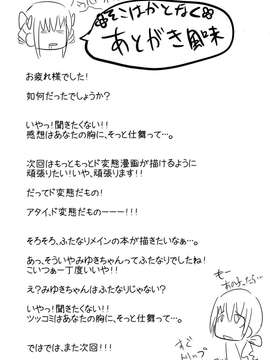 そこはかとなく
あとがき風味
お疲れ様でした!
如何だったでしょうか?
いやっ!聞きたくない!!
感想はあなたの胸に、そっと仕舞って…。
次回はもっともっとド変態漫画が描けるように
頑張りたい!いや、頑張ります!!
だってド変態だもの!
アタイ、ド変態だものーーー!!!
そろそろ、ふたなりメインの本が描きたいなぁ…。
あっ、そういやみゆきちゃんってふたなりでしたね!
こいつぁー丁度いいや!!
え?みゆきちゃんはふたなりじゃない?
いやっ!聞きたくない!!
ツッコミはあなたの胸に、そっと仕舞って…。
ではでは、また次回!!!